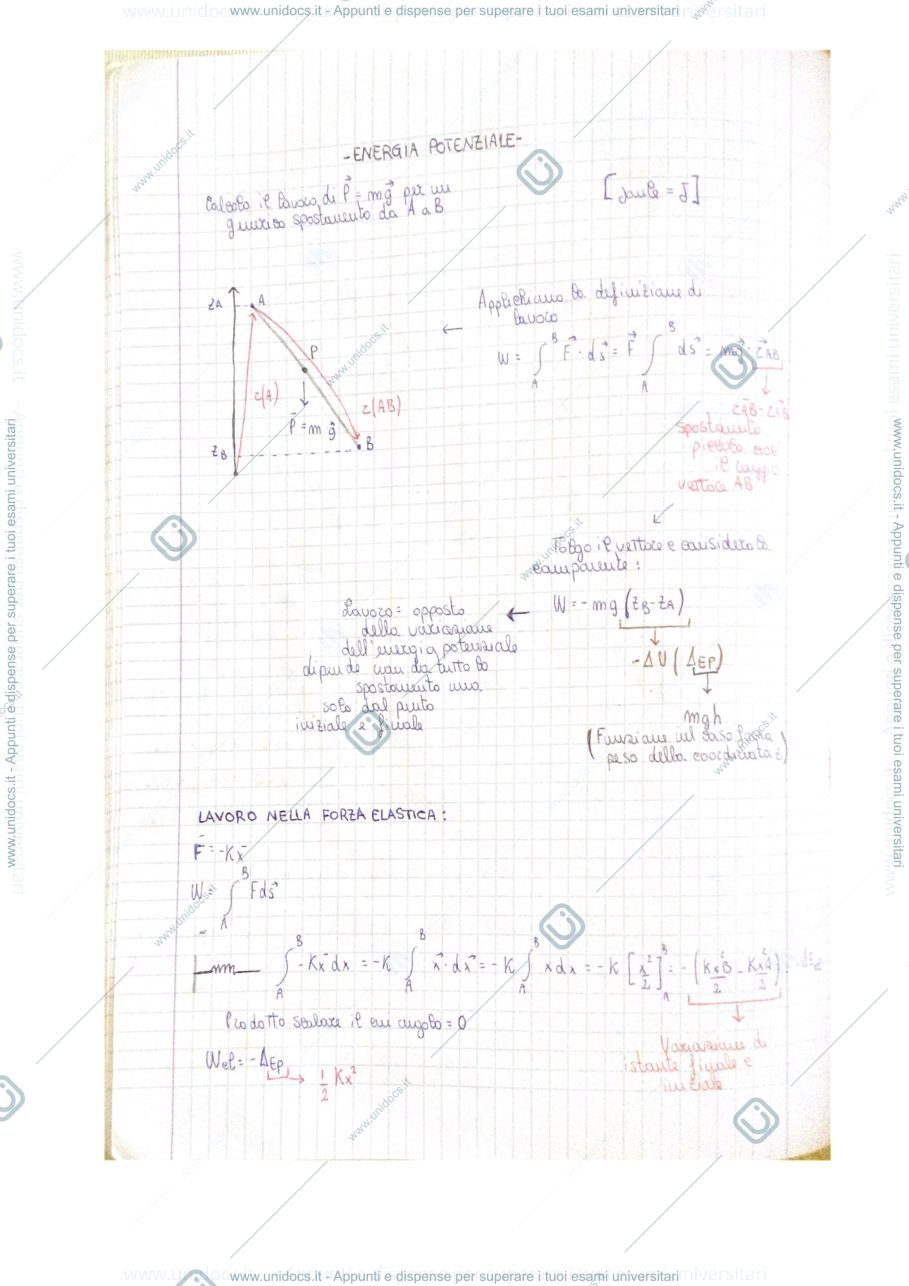 www.unidocs.it - Appunti e dispense per superare i tuoi esami universitari
-ENERGIA POTENZIALE-
Calcolo il lavoro di P⃗ = mg⃗ per un
generico spostamento da A a B
[Joule = J]
zA
A
P
r(A)
r(AB)
P⃗ = m g⃗
zB
B
Applichiamo la definizione di
lavoro
←
W = ∫_A^B F⃗ · ds⃗ = F⃗ ∫_A^B ds⃗ = mg⃗ · rAB
spostamento
piccolo
il raggio
vettore AB
Tolgo il vettore e considero la
componente:
W = - mg (zB - zA)
-ΔU (ΔEP)
mgh
(Funzione nel caso forza
peso della coordinata z)
Lavoro = opposto
della variazione
dell'energia potenziale
dipende non da tutto lo
spostamento ma
solo dal punto
iniziale e finale
LAVORO NELLA FORZA ELASTICA:
F̄ = -Kx̄
W = ∫_A^B F ds⃗
∫_A^B -Kx⃗ dx = -K ∫_A^B x⃗ · dx⃗ = -K ∫_A^B x dx = -K [x²/2]_A^B = - (Kx²B/2 - Kx²A/2)
Prodotto scalare il cui angolo = 0
Variazione di
istante finale e
iniziale
Wel = - ΔEP
1/2 Kx²
www.unidocs.it - Appunti e dispense per superare i tuoi esami universitari